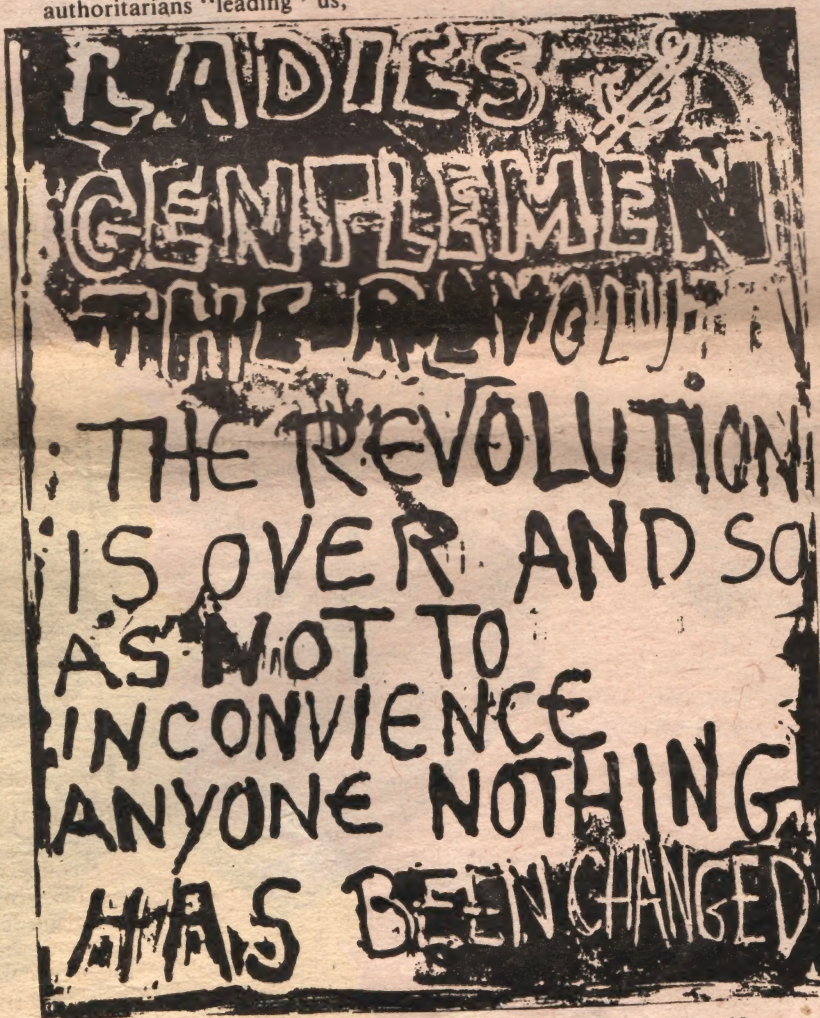 authoritarians "leading" us,
LADIES &
GENTLEMEN
THE REVOLUTION
THE REVOLUTION
IS OVER AND SO
AS NOT TO
INCONVIENCE
ANYONE NOTHING
HAS BEEN CHANGED